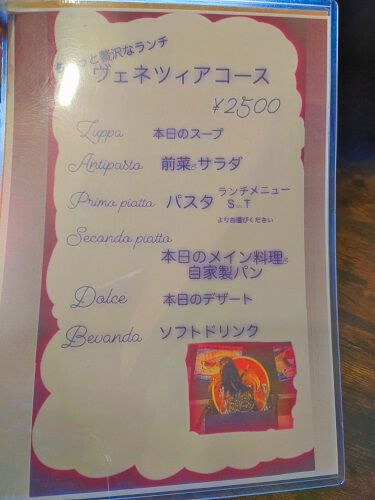 ちょっと贅沢なランチ
ヴェネツィアコース
¥2500
Zuppa 本日のスープ
Antipasto 前菜とサラダ
Primo piatto パスタ ランチメニュー
S or T
よりお選びください
Secondo piatto
本日のメイン料理と
自家製パン
Dolce 本日のデザート
Bevanda ソフトドリンク